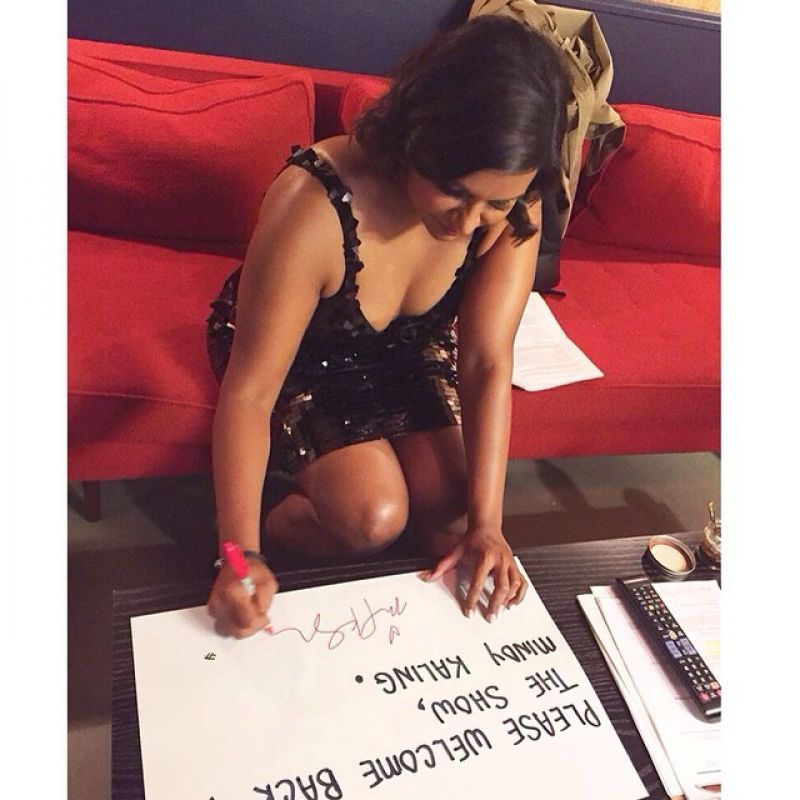 PLEASE WELCOME BACK
THE SHOW,
MINDY KALING.